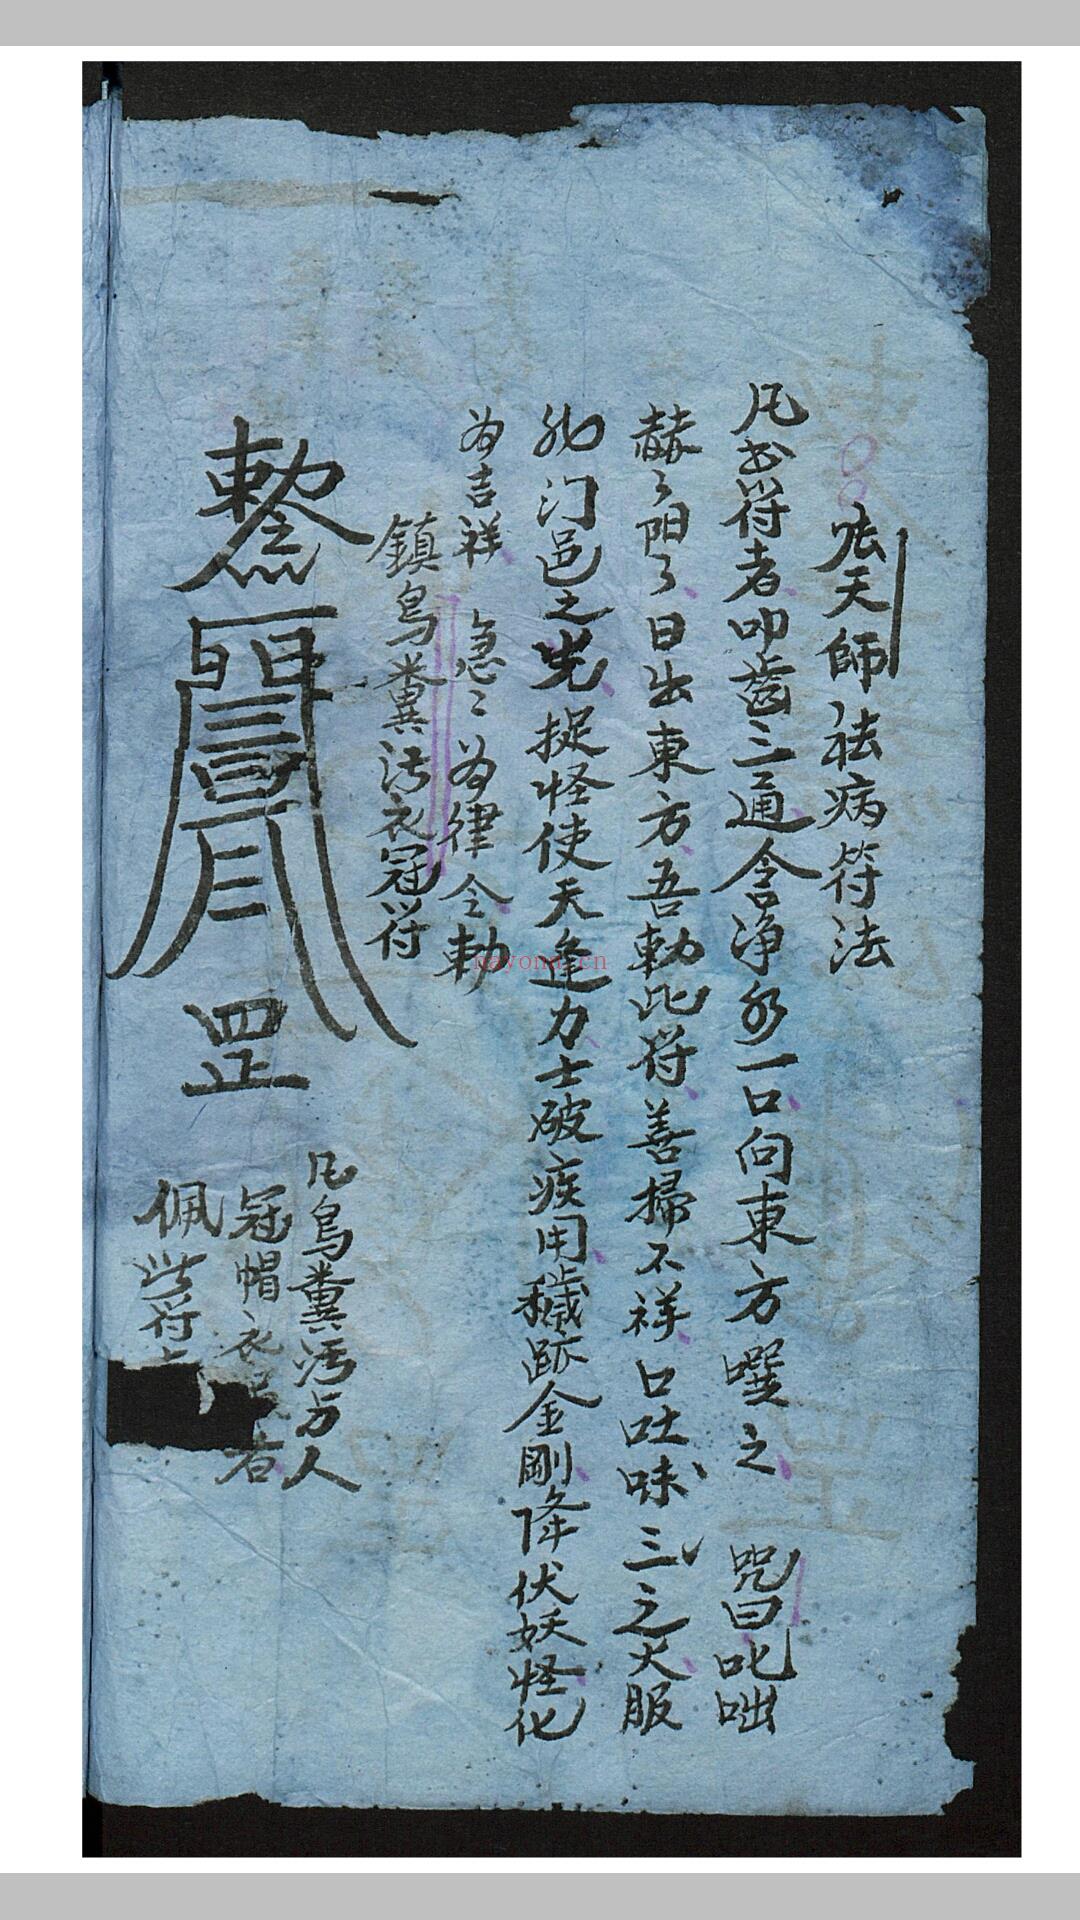 張天師祛病符法
凡书符者叩齒三通含净水一口向東方噀之 咒曰叱咄
赫々阳々日出東方吾勅此符善掃不祥口吐三昧之火服
飛门邑之光捉怪使天逢力士破疾用穢跡金剛降伏妖怪化
为吉祥 急々为律令勅
鎮鳥糞污衣冠符
勅
罡
凡鳥糞污与人
冠帽衣 右
佩此符
nayona.cn